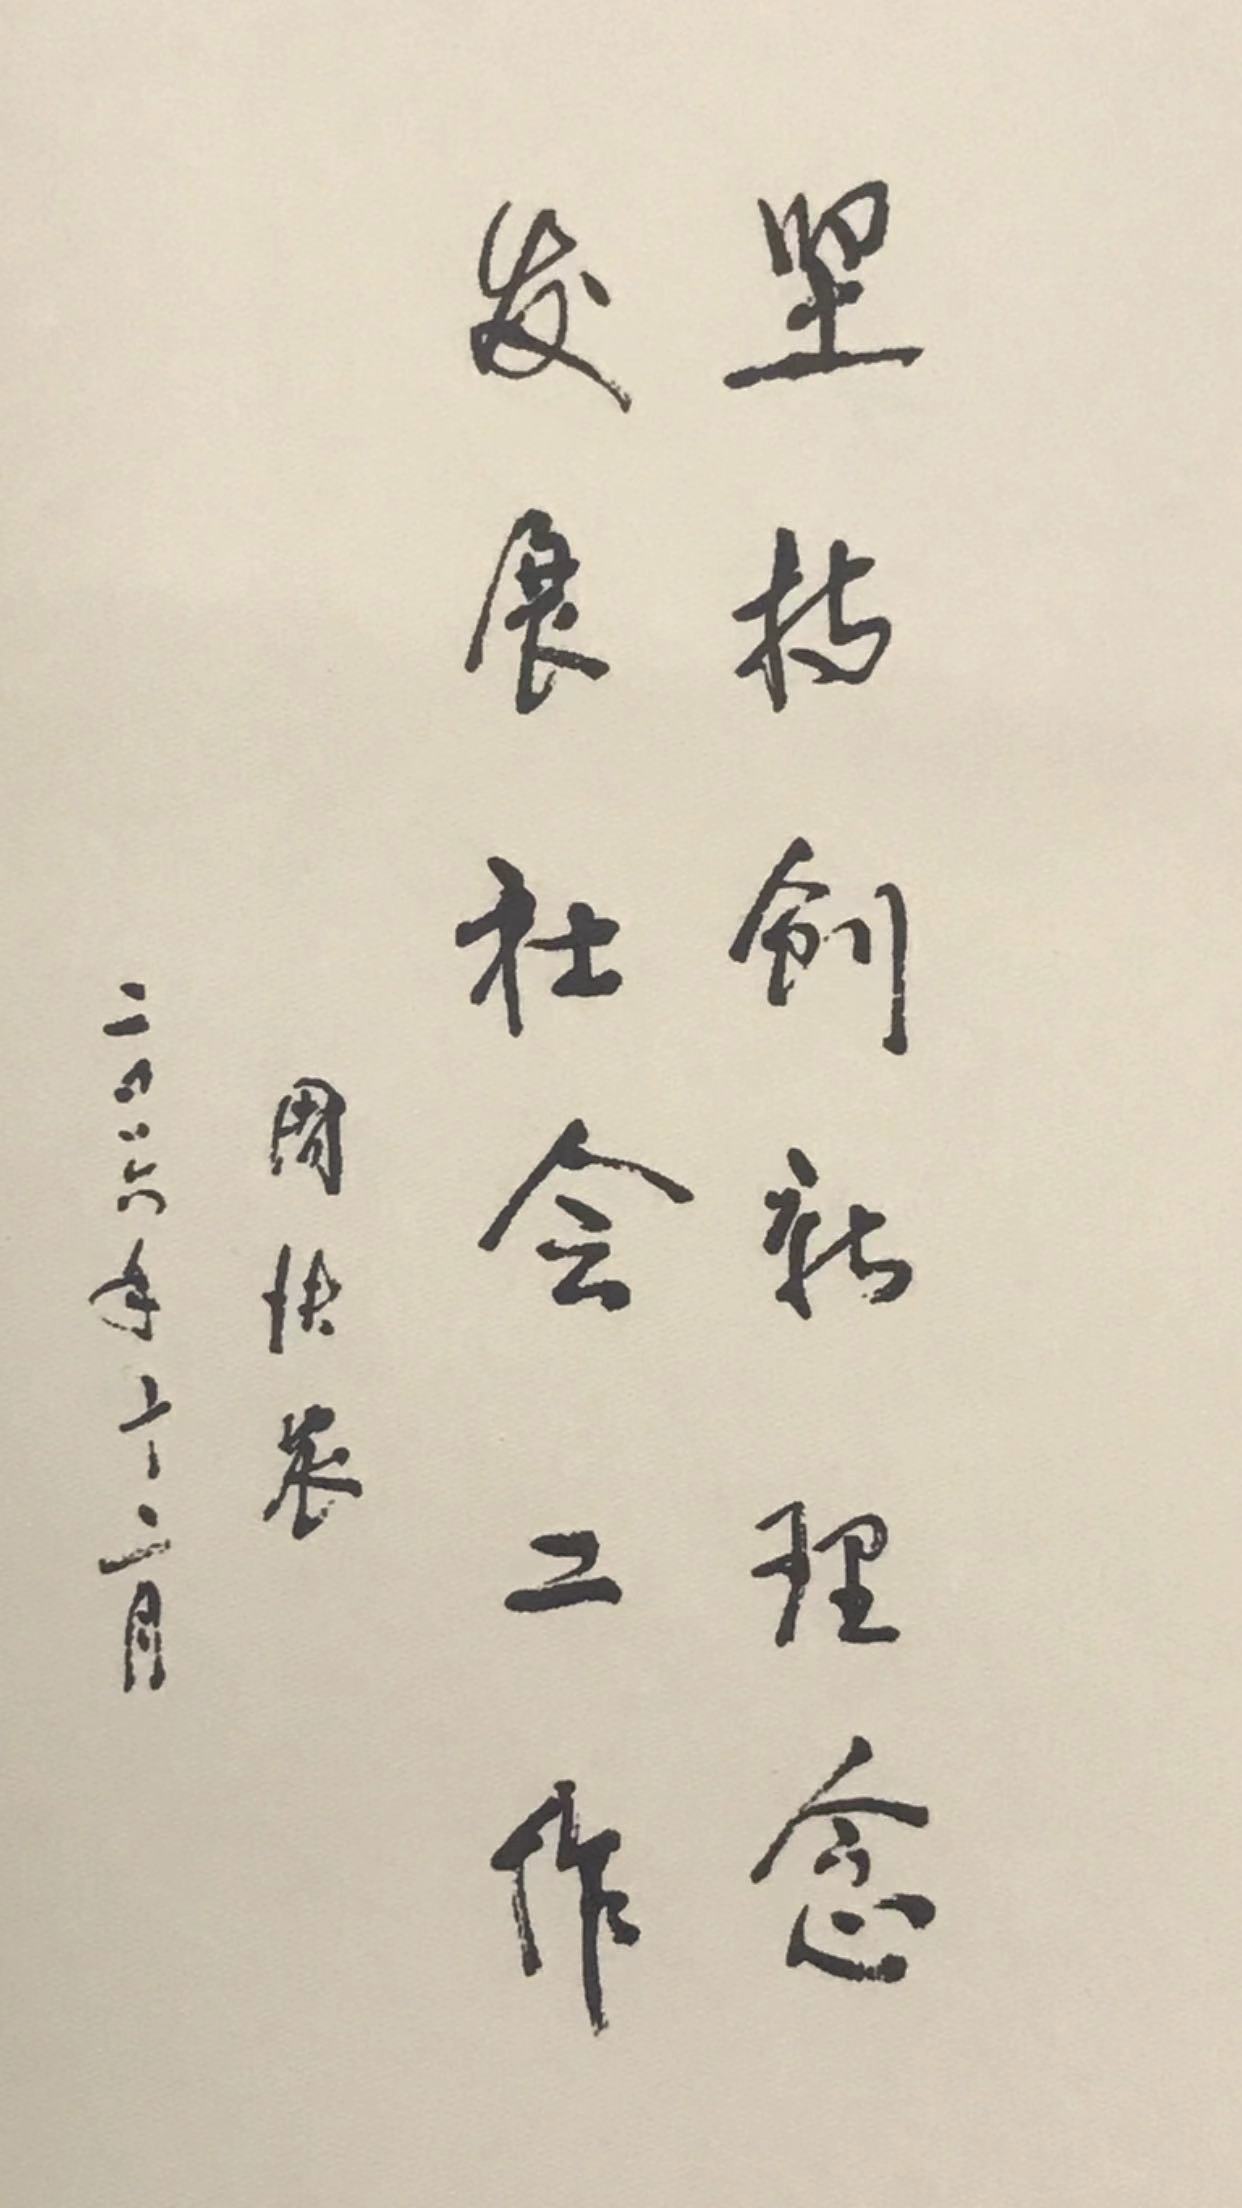 坚持创新理念
发展社会工作
周铁农
二〇一六年十二月